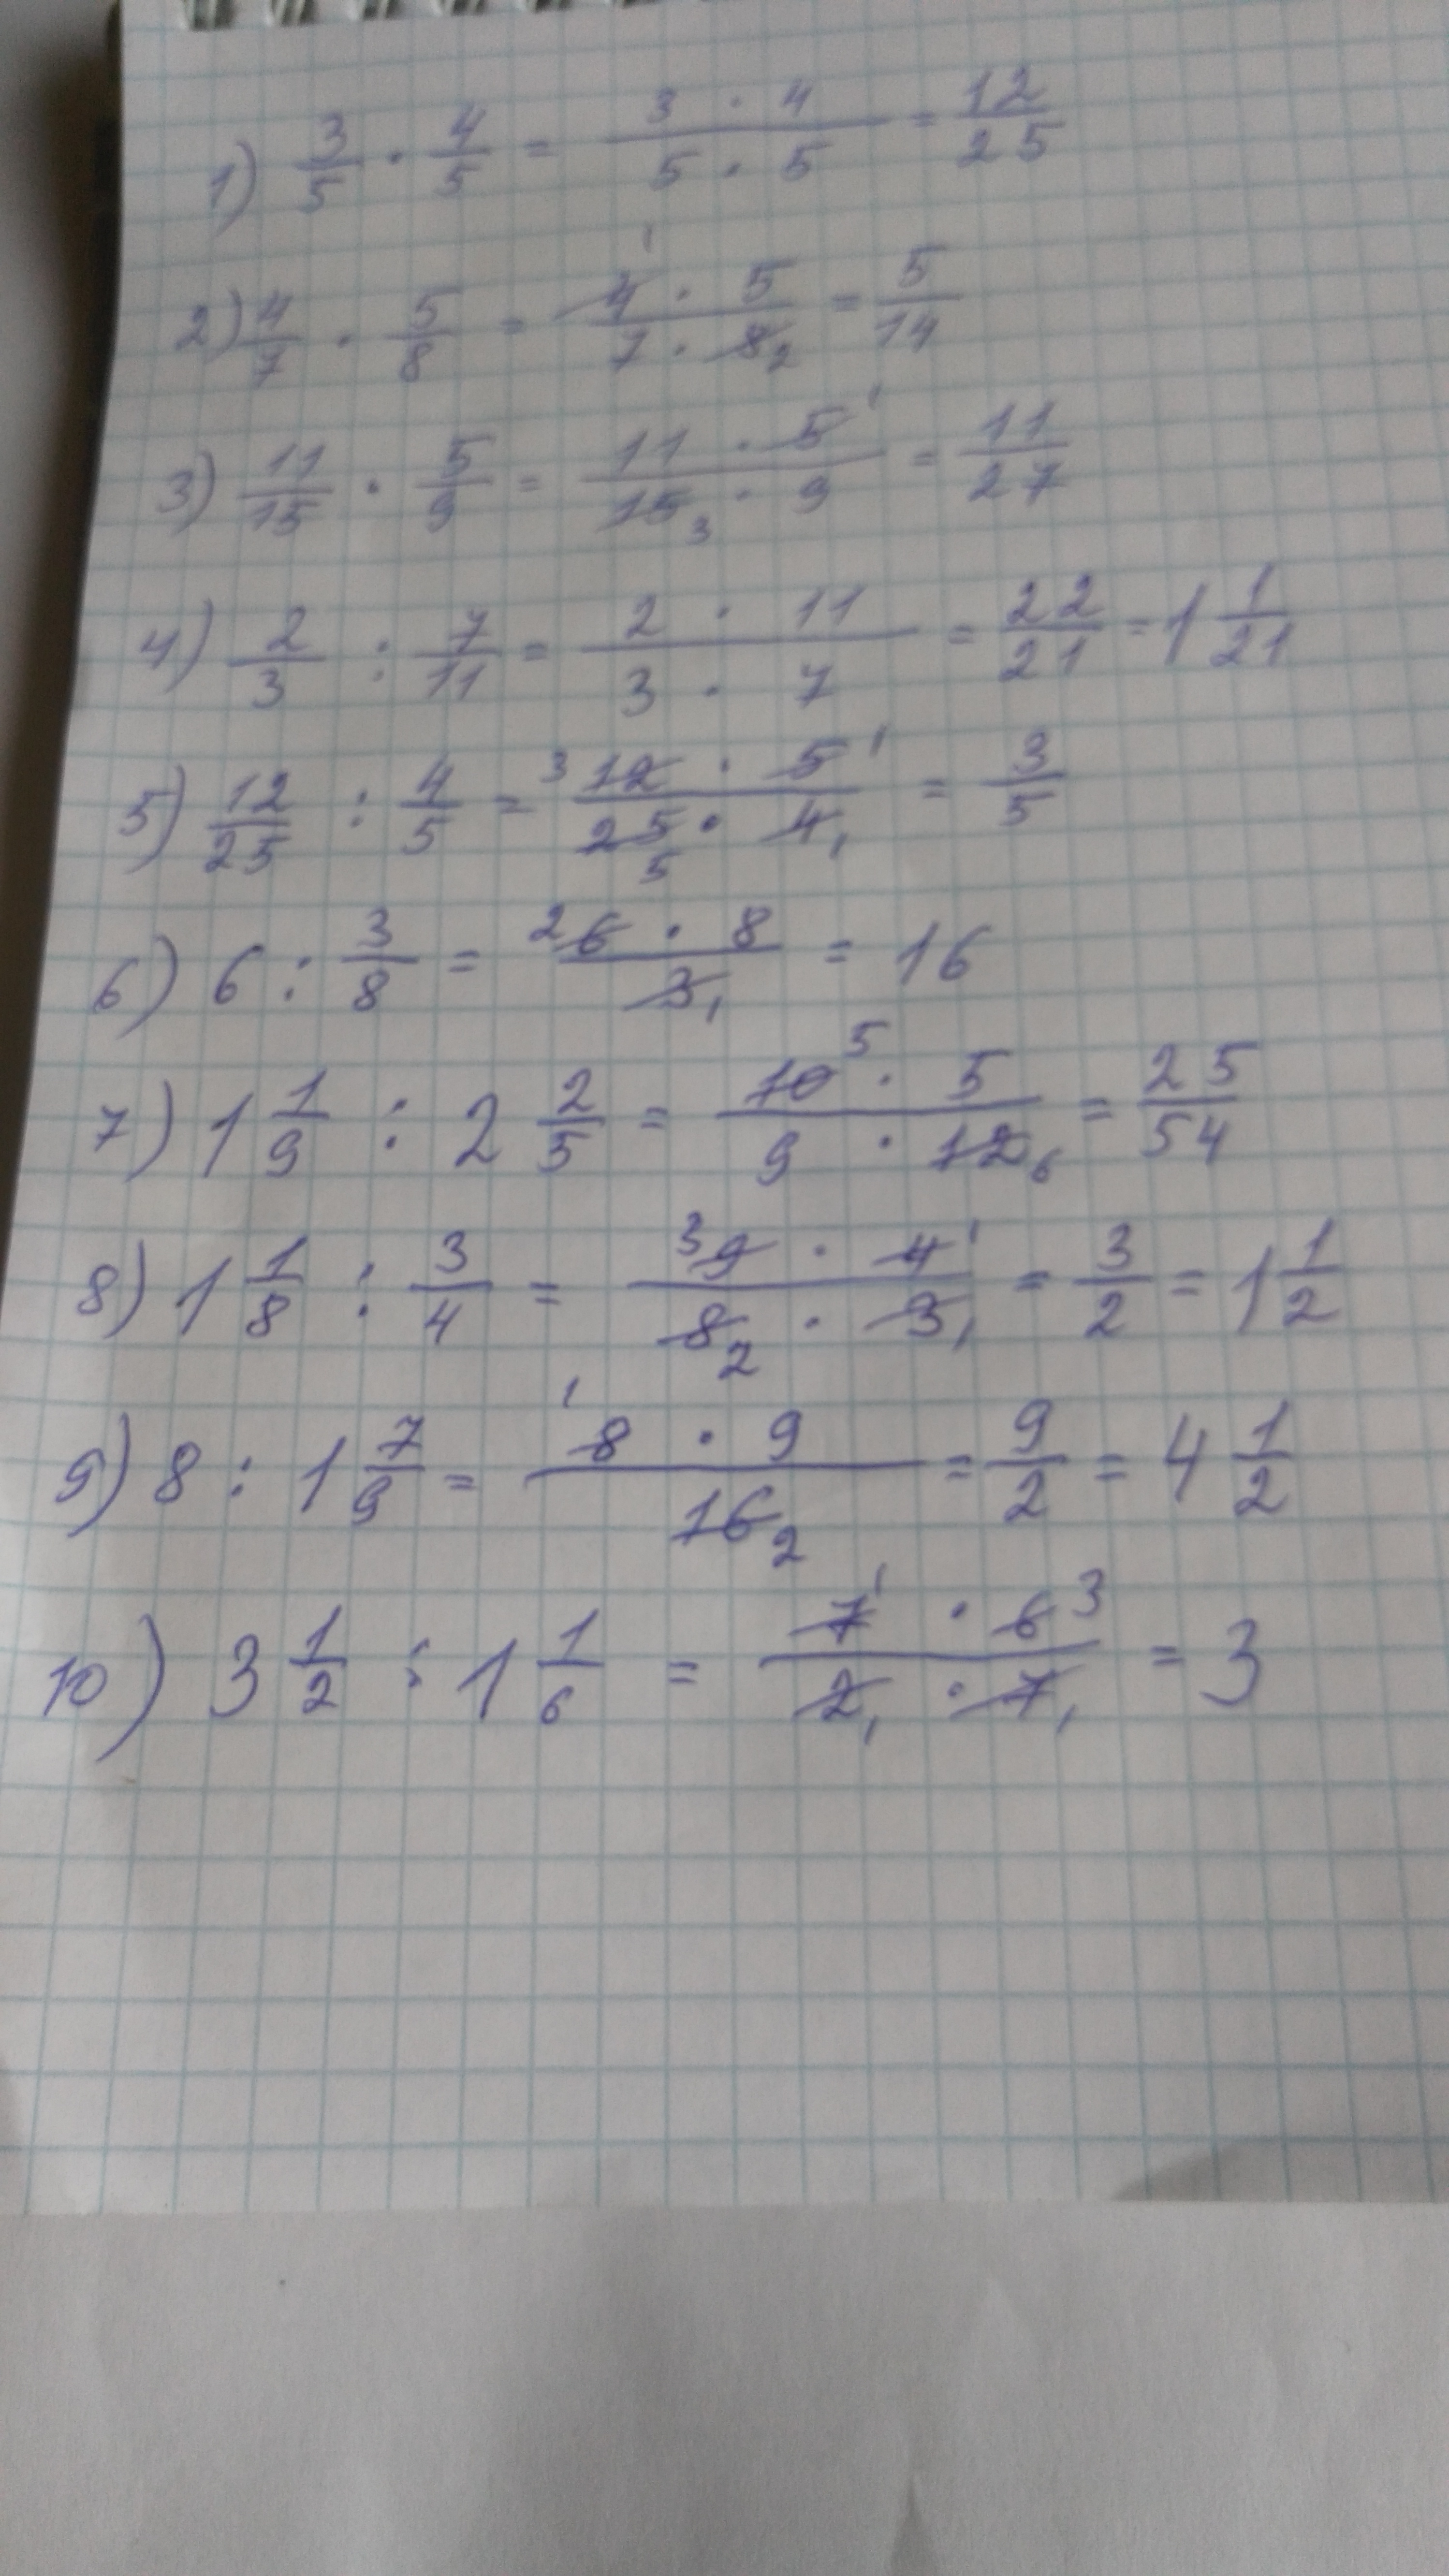 1) 3/5 · 4/5 = 3 · 4 / 5 · 5 = 12/25
2) 4/7 · 5/8 = 4 1 · 5 / 7 · 8 2 = 5/14
3) 11/15 · 5/9 = 11 · 5 1 / 15 3 · 9 = 11/27
4) 2/3 : 7/11 = 2 · 11 / 3 · 7 = 22/21 = 1 1/21
5) 12/25 : 4/5 = 3 12 · 5 1 / 25 5 · 4 1 = 3/5
6) 6 : 3/8 = 2 6 · 8 / 3 1 = 16
7) 1 1/9 : 2 2/5 = 10 5 · 5 / 9 · 12 6 = 25/54
8) 1 1/8 : 3/4 = 3 9 · 4 1 / 8 2 · 3 1 = 3/2 = 1 1/2
9) 8 : 1 7/9 = 1 8 · 9 / 16 2 = 9/2 = 4 1/2
10) 3 1/2 : 1 1/6 = 7 1 · 6 3 / 2 1 · 7 1 = 3